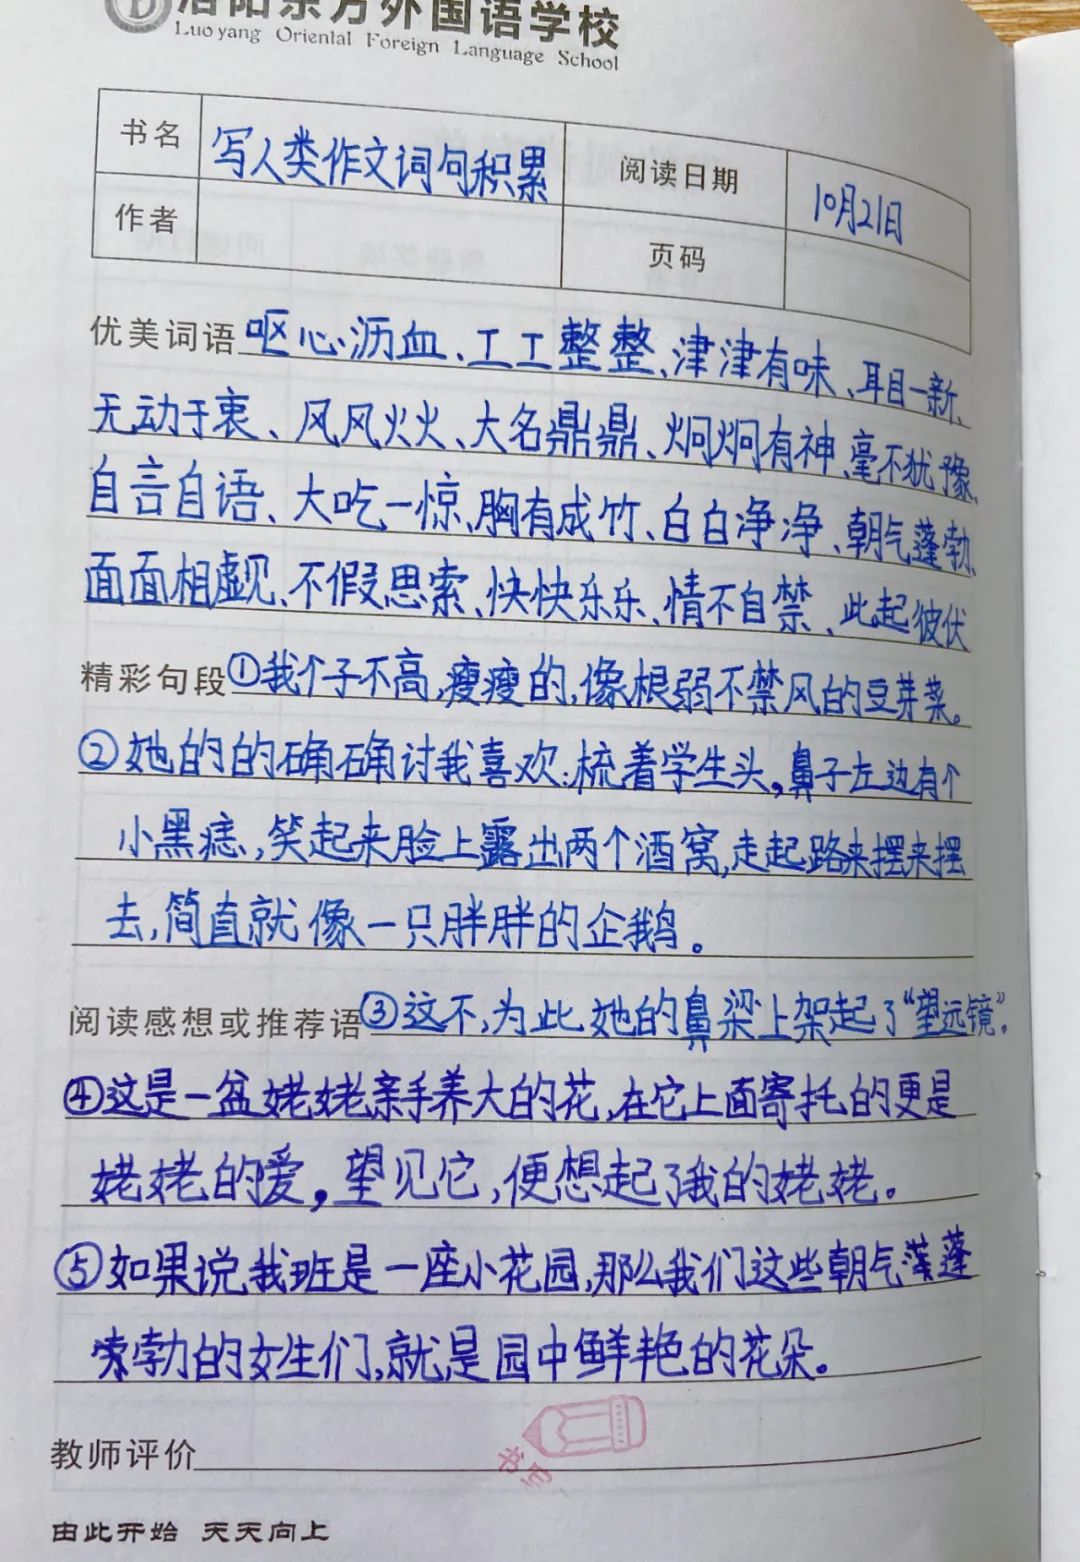 洛阳东方外国语学校
Luoyang Oriental Foreign Language School
书名 写人类作文词句积累 阅读日期 10月21日
作者 页码
优美词语 呕心沥血、工工整整、津津有味、耳目一新、
无动于衷、风风火火、大名鼎鼎、炯炯有神、毫不犹豫、
自言自语、大吃一惊、胸有成竹、白白净净、朝气蓬勃、
面面相觑、不假思索、快快乐乐、情不自禁、此起彼伏
精彩句段 ①我个子不高,瘦瘦的,像根弱不禁风的豆芽菜。
②她的的确确讨我喜欢:梳着学生头,鼻子左边有个
小黑痣,笑起来脸上露出两个酒窝,走起路来摆来摆
去,简直就像一只胖胖的企鹅。
阅读感想或推荐语 ③这不,为此她的鼻梁上架起了“望远镜”。
④这是一盆姥姥亲手养大的花,在它上面寄托的更是
姥姥的爱,望见它,便想起了我的姥姥。
⑤如果说我班是一座小花园,那么我们这些朝气蓬
勃的女生们,就是园中鲜艳的花朵。
教师评价
书写
由此开始 天天向上